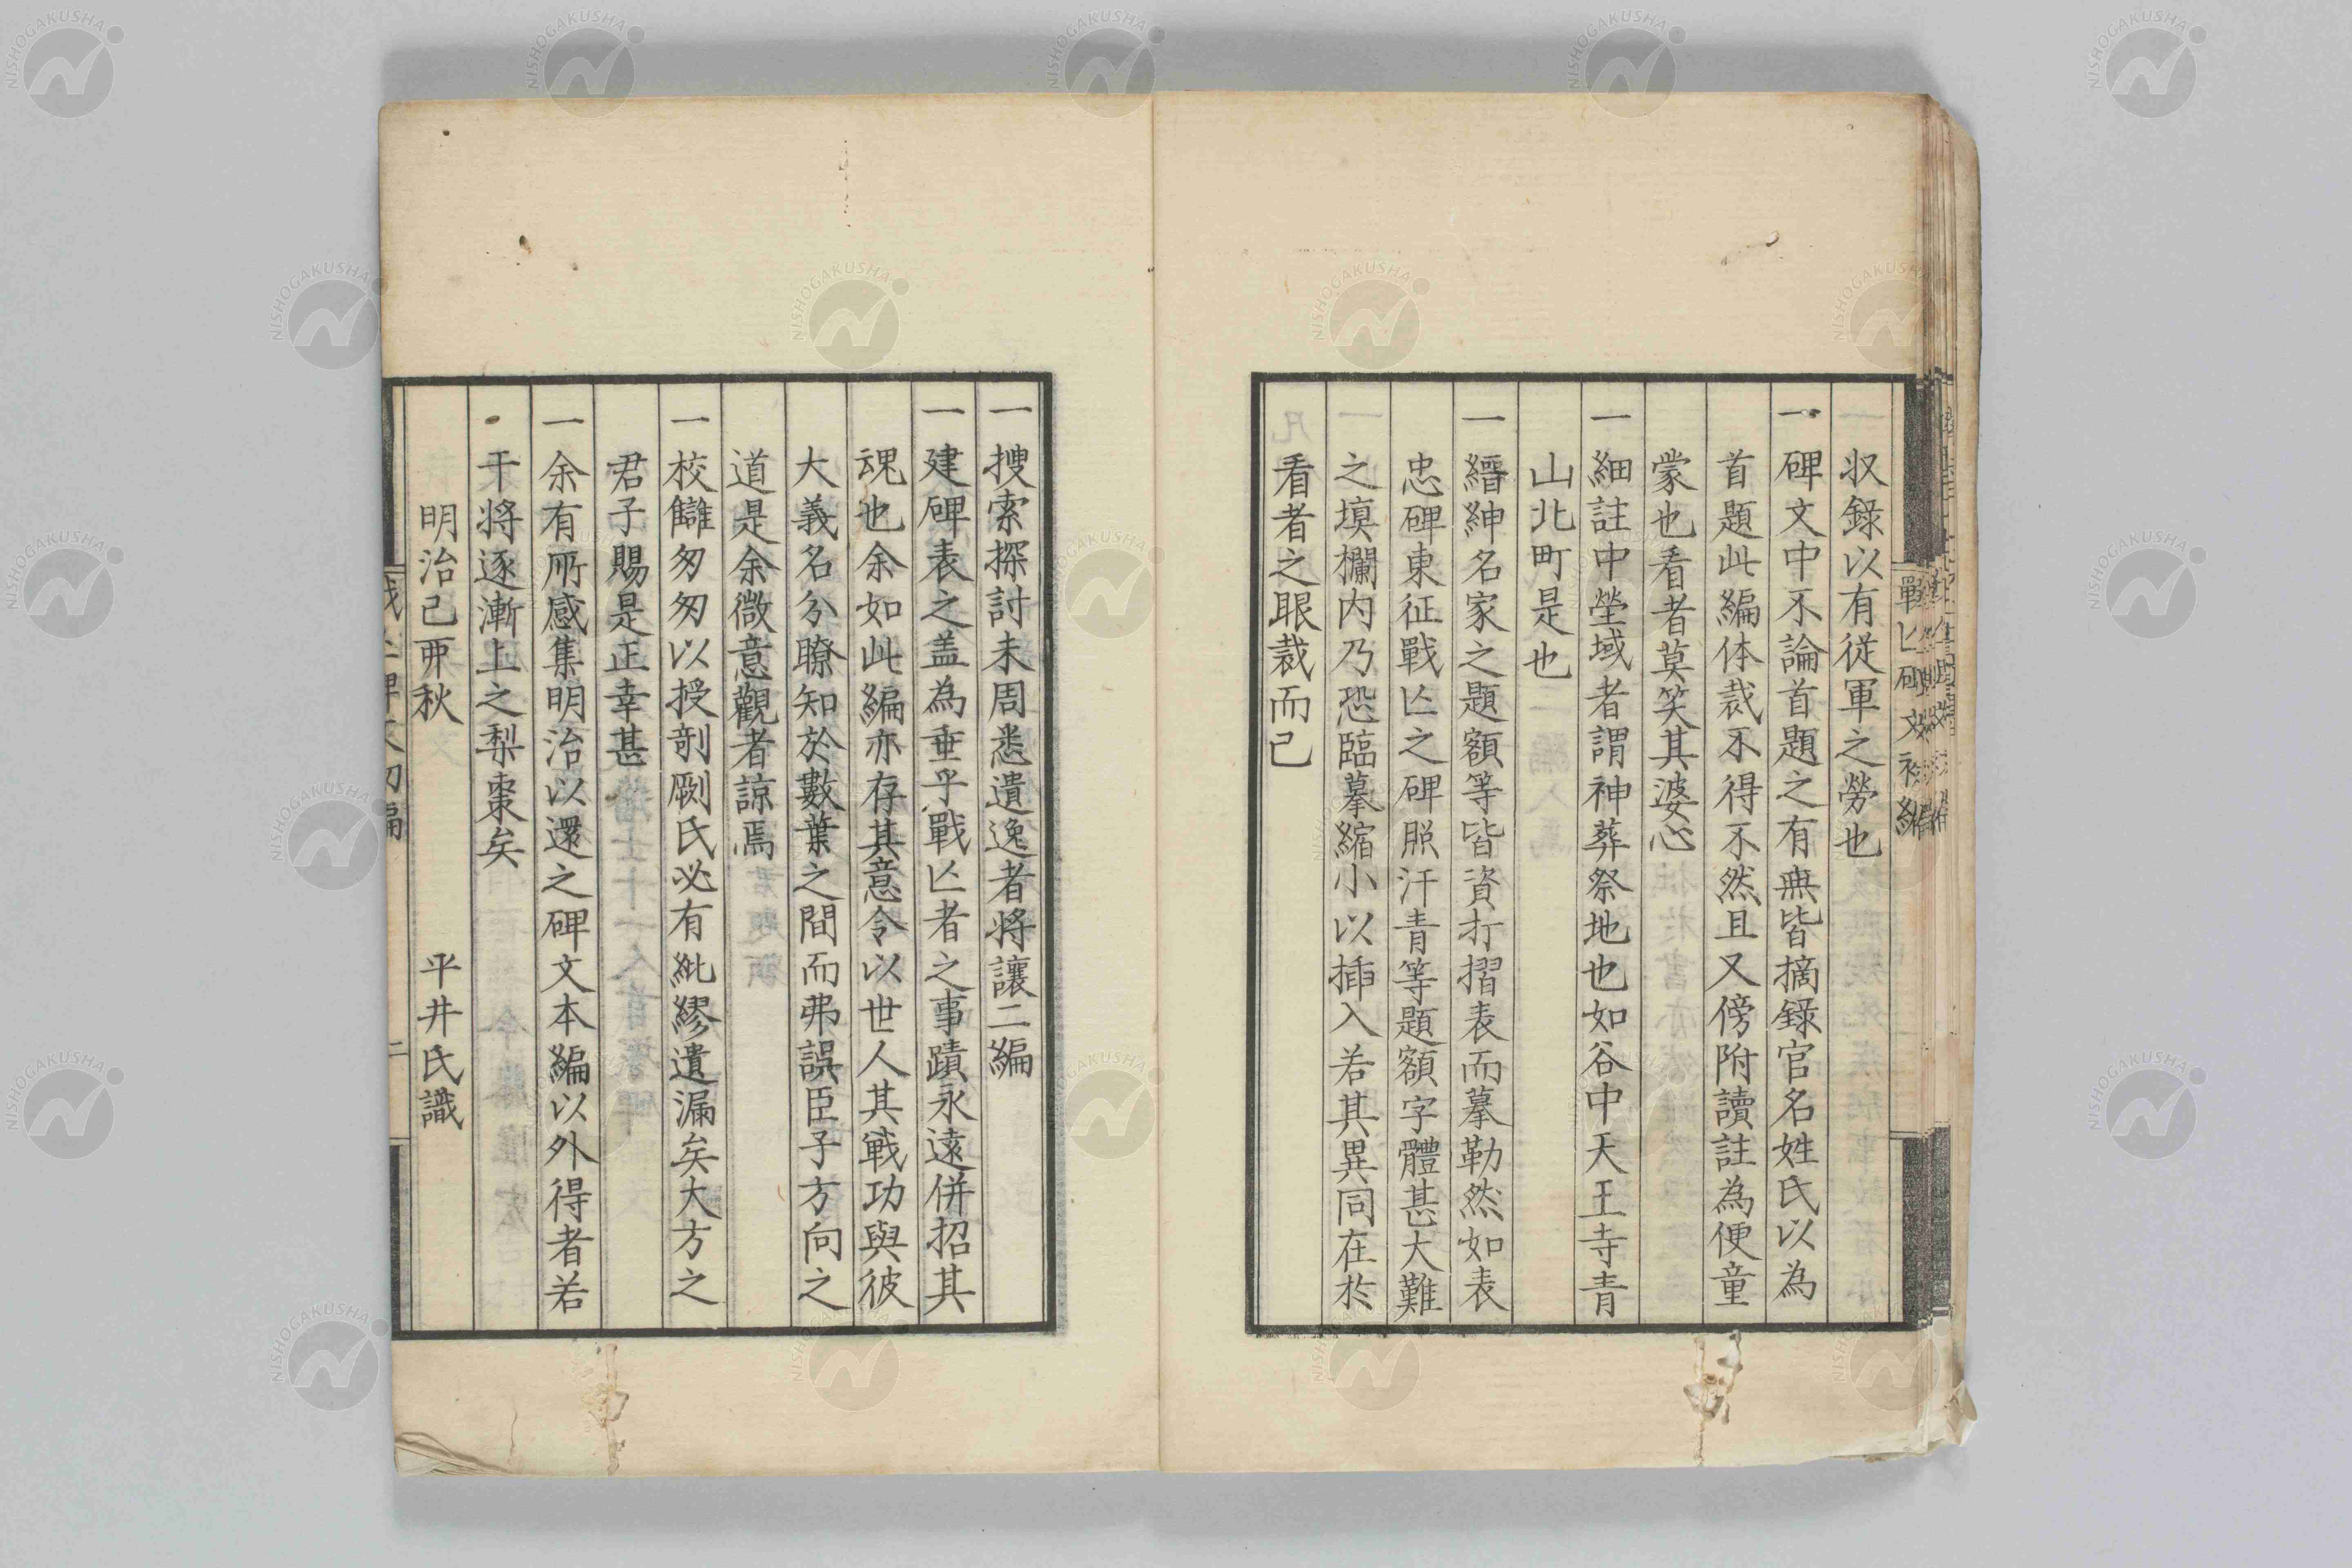 収錄以有従軍之勞也
一碑文中不論首題之有無皆摘錄官名姓氏以為
首題此編体裁不得不然且又傍附讀註為便童
蒙也看者莫笑其婆心
一細註中塋域者謂神葬祭地也如谷中天王寺青
山北町是也
一縉紳名家之題額等皆資打摺表而摹勒然如表
忠碑東征戰亾之碑照汗青等題額字體甚大難
之塡欄内乃恐臨摹縮小以揷入若其異同在於
看者之眼裁而已
戰亾碑文初編
一搜索探討未周悉遺逸者将讓二編
一建碑表之盖為垂乎戰亾者之事蹟永遠併招其
魂也余如此編亦存其意令以世人其戰功與彼
大義名分瞭知於數葉之間而弗誤臣子方向之
道是余微意觀者諒焉
一校讎匆匆以授剞劂氏必有紕繆遺漏矣大方之
君子賜是正幸甚
一余有所感集明治以還之碑文本編以外得者若
干将逐漸上之梨棗矣
明治己夘秋　平井氏識
二
NISHOGAKUSHA